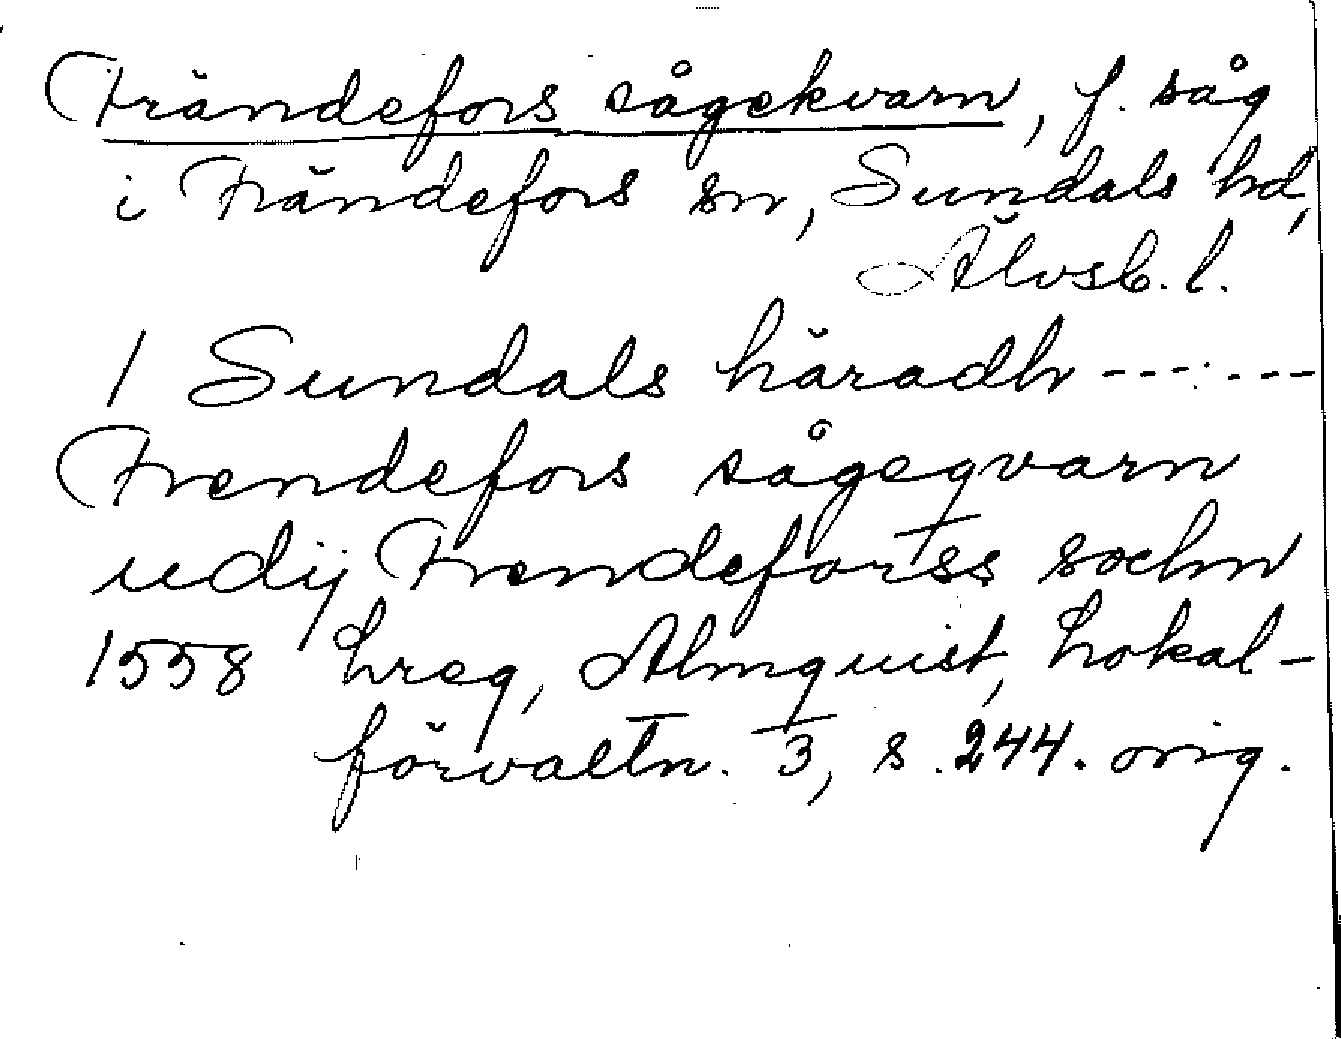 Frändefors sågekvarn, f. såg
i Frändefors sn, Sundals hd,
Älvsb. l.
I Sundals häradh ------
Frendefors sågeqvarn
udij Frendeforss sochn
1558 hreg, Almquist, Lokal-
förvaltn. 3, s. 244. orig.